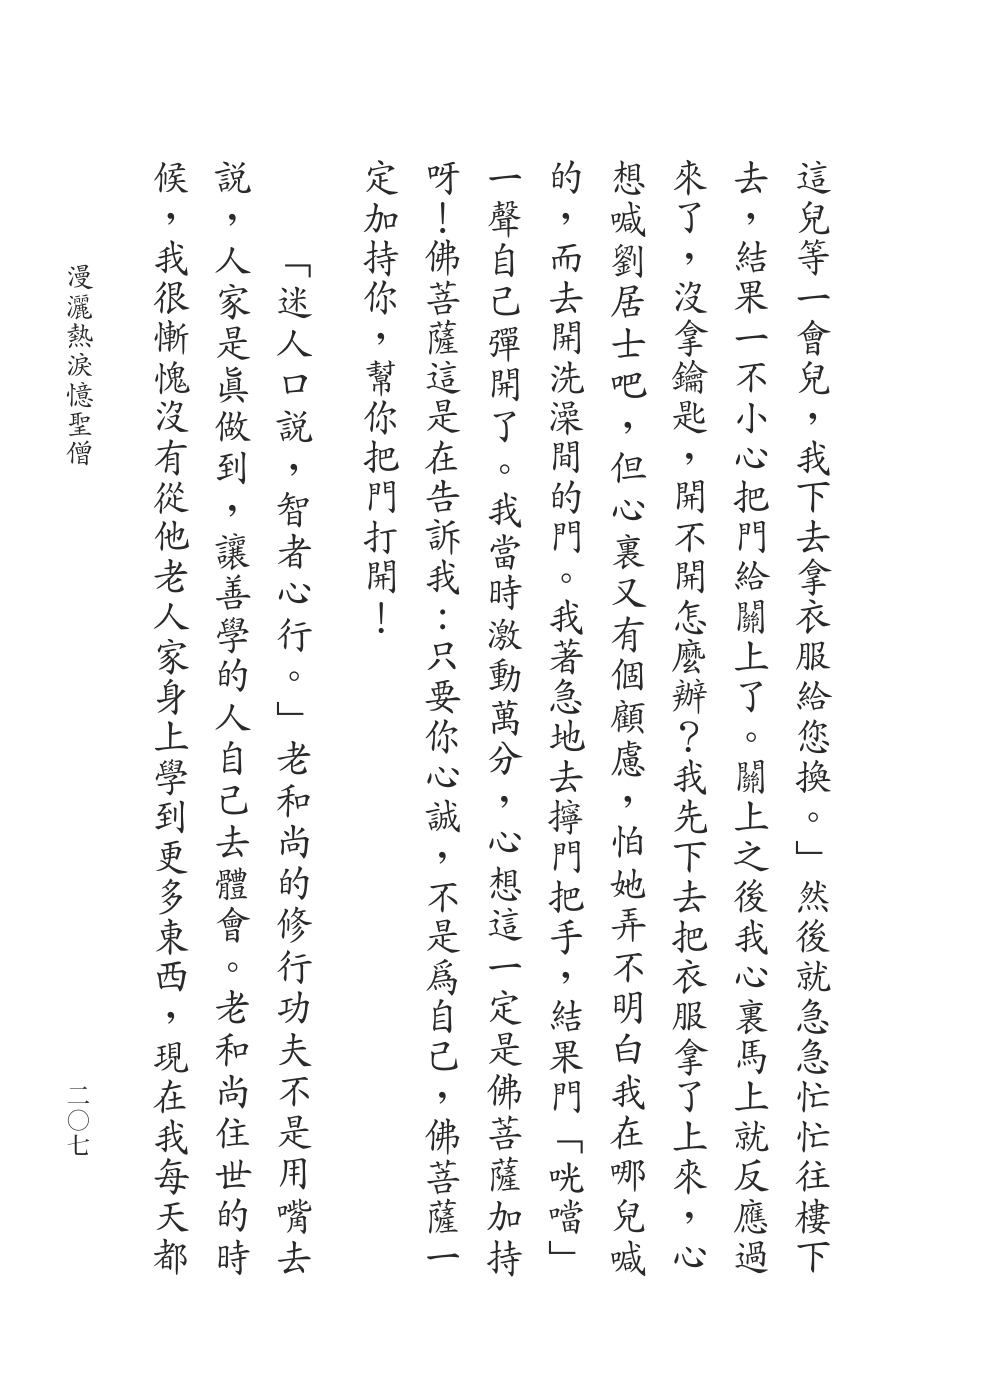 這兒等一會兒，我下去拿衣服給您換。」然後就急急忙忙往樓下
去，結果一不小心把門給關上了。關上之後我心裏馬上就反應過
來了，沒拿鑰匙，開不開怎麼辦？我先下去把衣服拿了上來，心
想喊劉居士吧，但心裏又有個顧慮，怕她弄不明白我在哪兒喊
的，而去開洗澡間的門。我著急地去擰門把手，結果門「咣噹」
一聲自己彈開了。我當時激動萬分，心想這一定是佛菩薩加持
呀！佛菩薩這是在告訴我：只要你心誠，不是爲自己，佛菩薩一
定加持你，幫你把門打開！
「迷人口説，智者心行。」老和尚的修行功夫不是用嘴去
説，人家是眞做到，讓善學的人自己去體會。老和尚住世的時
候，我很慚愧沒有從他老人家身上學到更多東西，現在我每天都
漫灑熱淚憶聖僧
二〇七